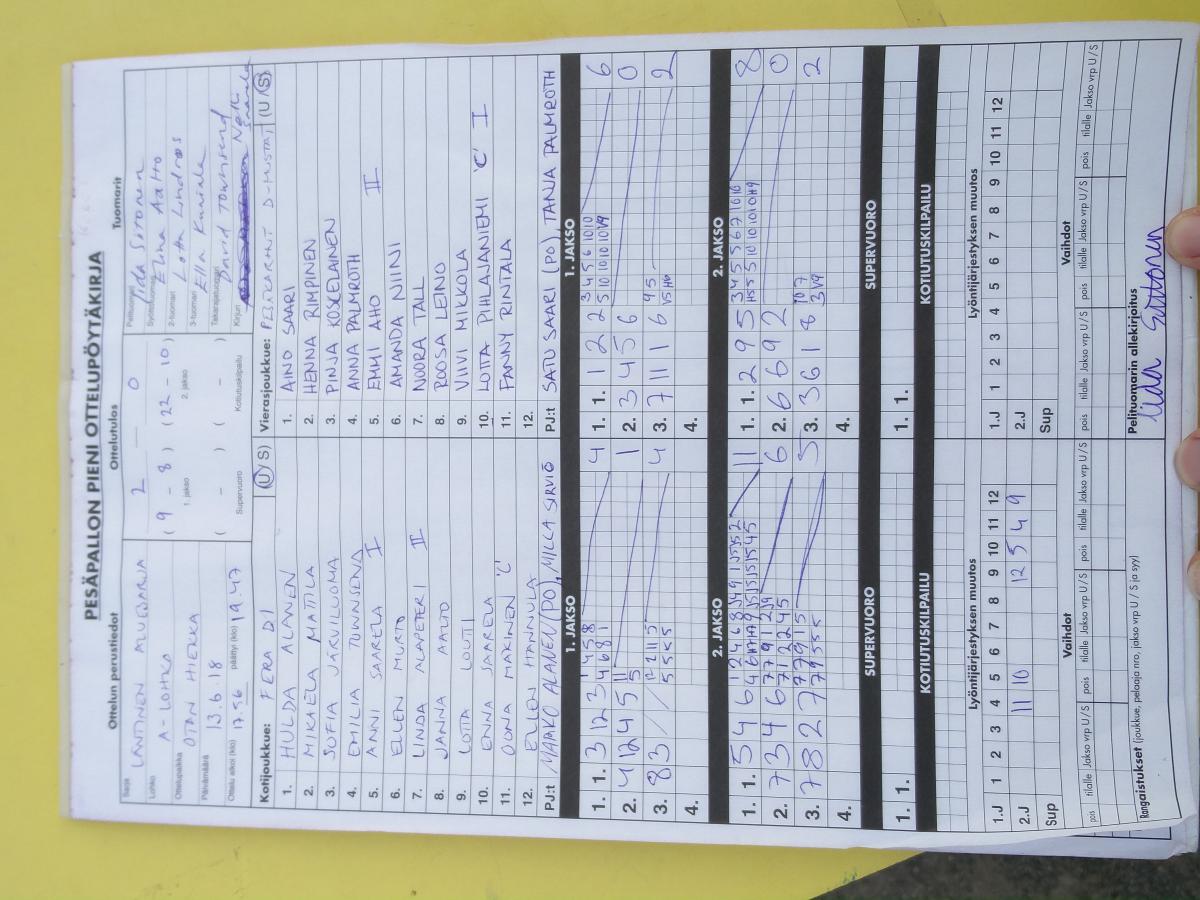 PESÄPALLON PIENI OTTELUPÖYTÄKIRJA
Ottelun perustiedot
Ottelutulos
Tuomarit
Sarja LÄNTINEN ALUESARJA
Lohko A-LOHKO
Ottelupaikka OTAN HIEKKA
Päivämäärä 13.6.18
Ottelu alkoi (klo) 17.56 päättyi (klo) 19.47
2 0
( 9 - 8 ) ( 22 - 10 )
1. jakso 2. jakso
( - ) ( - )
Supervuoro Kotiutuskilpailu
Pelituomari Iida Sorronen
Syöttötuomari Elina Aatto
2-tuomari Lotta Lindroos
3-tuomari Ella Kuniala
Takarajatuomari David Townsend
Kirjuri Noki Saarela
Kotijoukkue: FERA D1 (U/S)
1. HULDA ALANEN
2. MIKAELA MATTILA
3. SOFIA JÄRVILUOMA
4. EMILIA TOWNSEND
5. ANNI SAARELA I
6. ELLEN MURTO
7. LINDA ALAPETERI II
8. JANNA AALTO
9. LOTTA LOUTI
10. ENNA SAARELA
11. OONA MÄKINEN 'C'
12. ELLEN HANNULA
PJ:t MARKO ALANEN (PO), MILLA SIRVIÖ
Vierasjoukkue: PESÄKARHUT D-MUSTAT (U/S)
1. AINO SAARI
2. HENNA RIMPINEN
3. PINJA KOSKELAINEN
4. ANNA PALMROTH
5. EMMI AHO II
6. AMANDA NIINI
7. NOORA TALL
8. ROOSA LEINO
9. VIIVI MIKKOLA
10. LOTTA PIHLAJANIEMI 'C' I
11. FANNY RINTALA
12.
PJ:t SATU SAARI (PO), TANJA PALMROTH
1. JAKSO
1. 1. 3 12 3 1 4 5 8 4 6 8 1 4
2. 4 12 4 5 11 5 1
3. 8 3 / / 12 11 1 5 5 5 5 4
4.
1. JAKSO
1. 1. 1 2 2 3 4 5 6 10 10 5 10 10 10 10 V9 6
2. 3 4 5 6 0
3. 7 11 1 6 9 5 - V5 H6 2
4.
2. JAKSO
1. 1. 5 4 6 11
2. 7 3 4 6 7 7 9 1 2 7 1 2 2 4 5 6
3. 7 8 2 7 7 7 9 1 5 7 9 5 5 5
4.
2. JAKSO
1. 1. 2 9 5 3 4 5 5 6 7 10 10 H5 5 5 10 10 10 10 H9 8
2. 6 6 9 2 0
3. 3 6 1 8 10 7 3 V9 2
4.
SUPERVUORO
1. 1.
SUPERVUORO
1. 1.
KOTIUTUSKILPAILU
KOTIUTUSKILPAILU
Lyöntijärjestyksen muutos
1.J 1 2 3 4 5 6 7 8 9 10 11 12
2.J 11 10 12 5 4 9
Sup
Lyöntijärjestyksen muutos
1.J 1 2 3 4 5 6 7 8 9 10 11 12
2.J
Sup
Vaihdot
pois tilalle Jakso vrp U/S pois tilalle Jakso vrp U/S pois tilalle Jakso vrp U/S
Vaihdot
pois tilalle Jakso vrp U/S pois tilalle Jakso vrp U/S pois tilalle Jakso vrp U/S
Rangaistukset (joukkue, pelaaja nro, jakso vrp U / S ja syy)
Pelituomarin allekirjoitus
Iida Sorronen